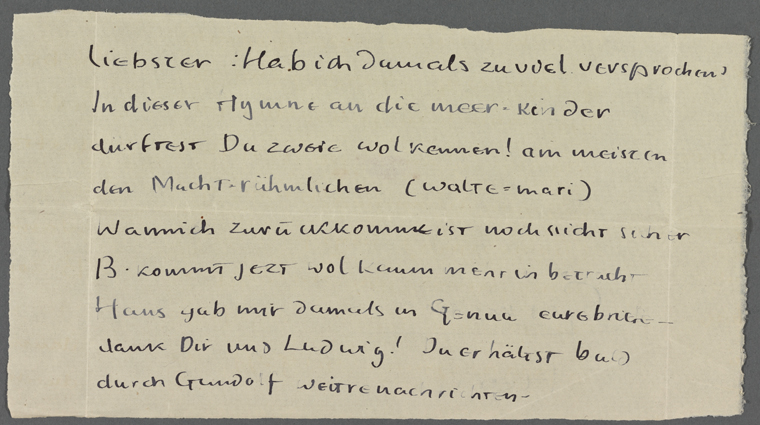 liebster : Hab ich damals zuviel versprochen?
In dieser Hymne an die meer-kinder
durftest Du zweie wol kennen! am meisten
den Macht-rühmlichen (walte=mari)
Wann ich zurückkomme ist noch nicht sicher
B. kommt jezt wol kaum mehr in betracht
Hans gab mir damals in Genua eure briefe—
dank Dir und Ludwig! Du erhälst bald
durch Gundolf weitre nachrichten-